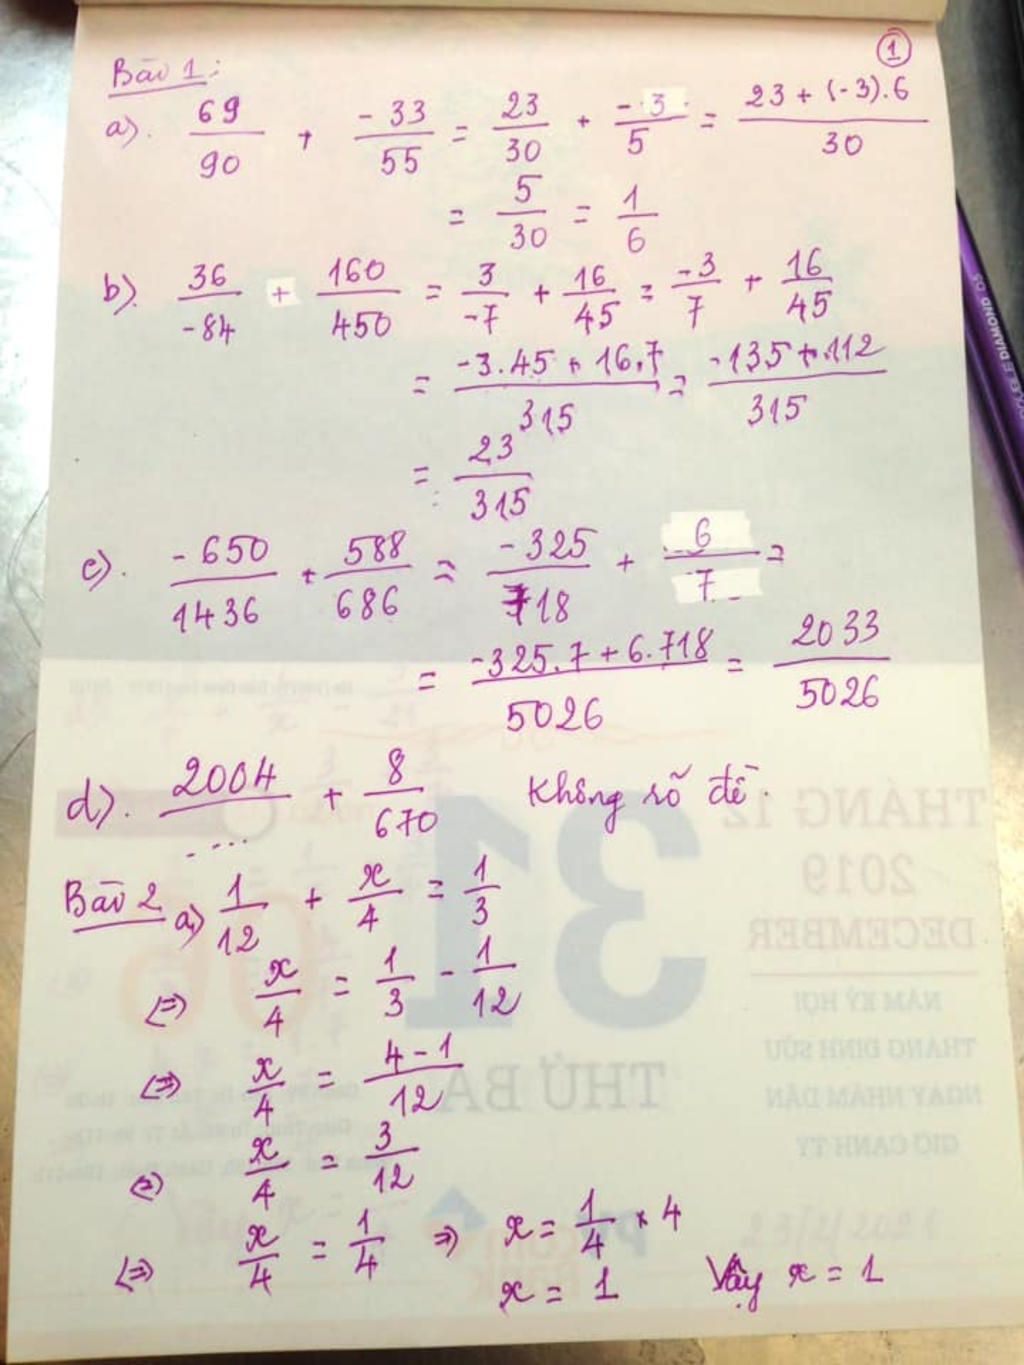 1
Bài 1:
a). 69/90 + -33/55 = 23/30 + -3/5 = 23 + (-3).6/30
= 5/30 = 1/6
b). 36/-84 + 160/450 = 3/-7 + 16/45 = -3/7 + 16/45
= -3.45 + 16.7/315 = -135 + 112/315
= 23/315
c). -650/1436 + 588/686 = -325/718 + 6/7 =
= -325.7 + 6.718/5026 = 2033/5026
d). 2004/.... + 8/670 Không rõ đề.
Bài 2 a) 1/12 + x/4 = 1/3
<=> x/4 = 1/3 - 1/12
<=> x/4 = 4-1/12
<=> x/4 = 3/12
<=> x/4 = 1/4 => x = 1/4 * 4
x = 1 Vậy x = 1
THÁNG 12
2019
DECEMBER
31
THỨ BA
NĂM KỶ HỢI
THÁNG ĐINH SỬU
NGÀY NHÂM DẦN
GIỜ CANH TÝ